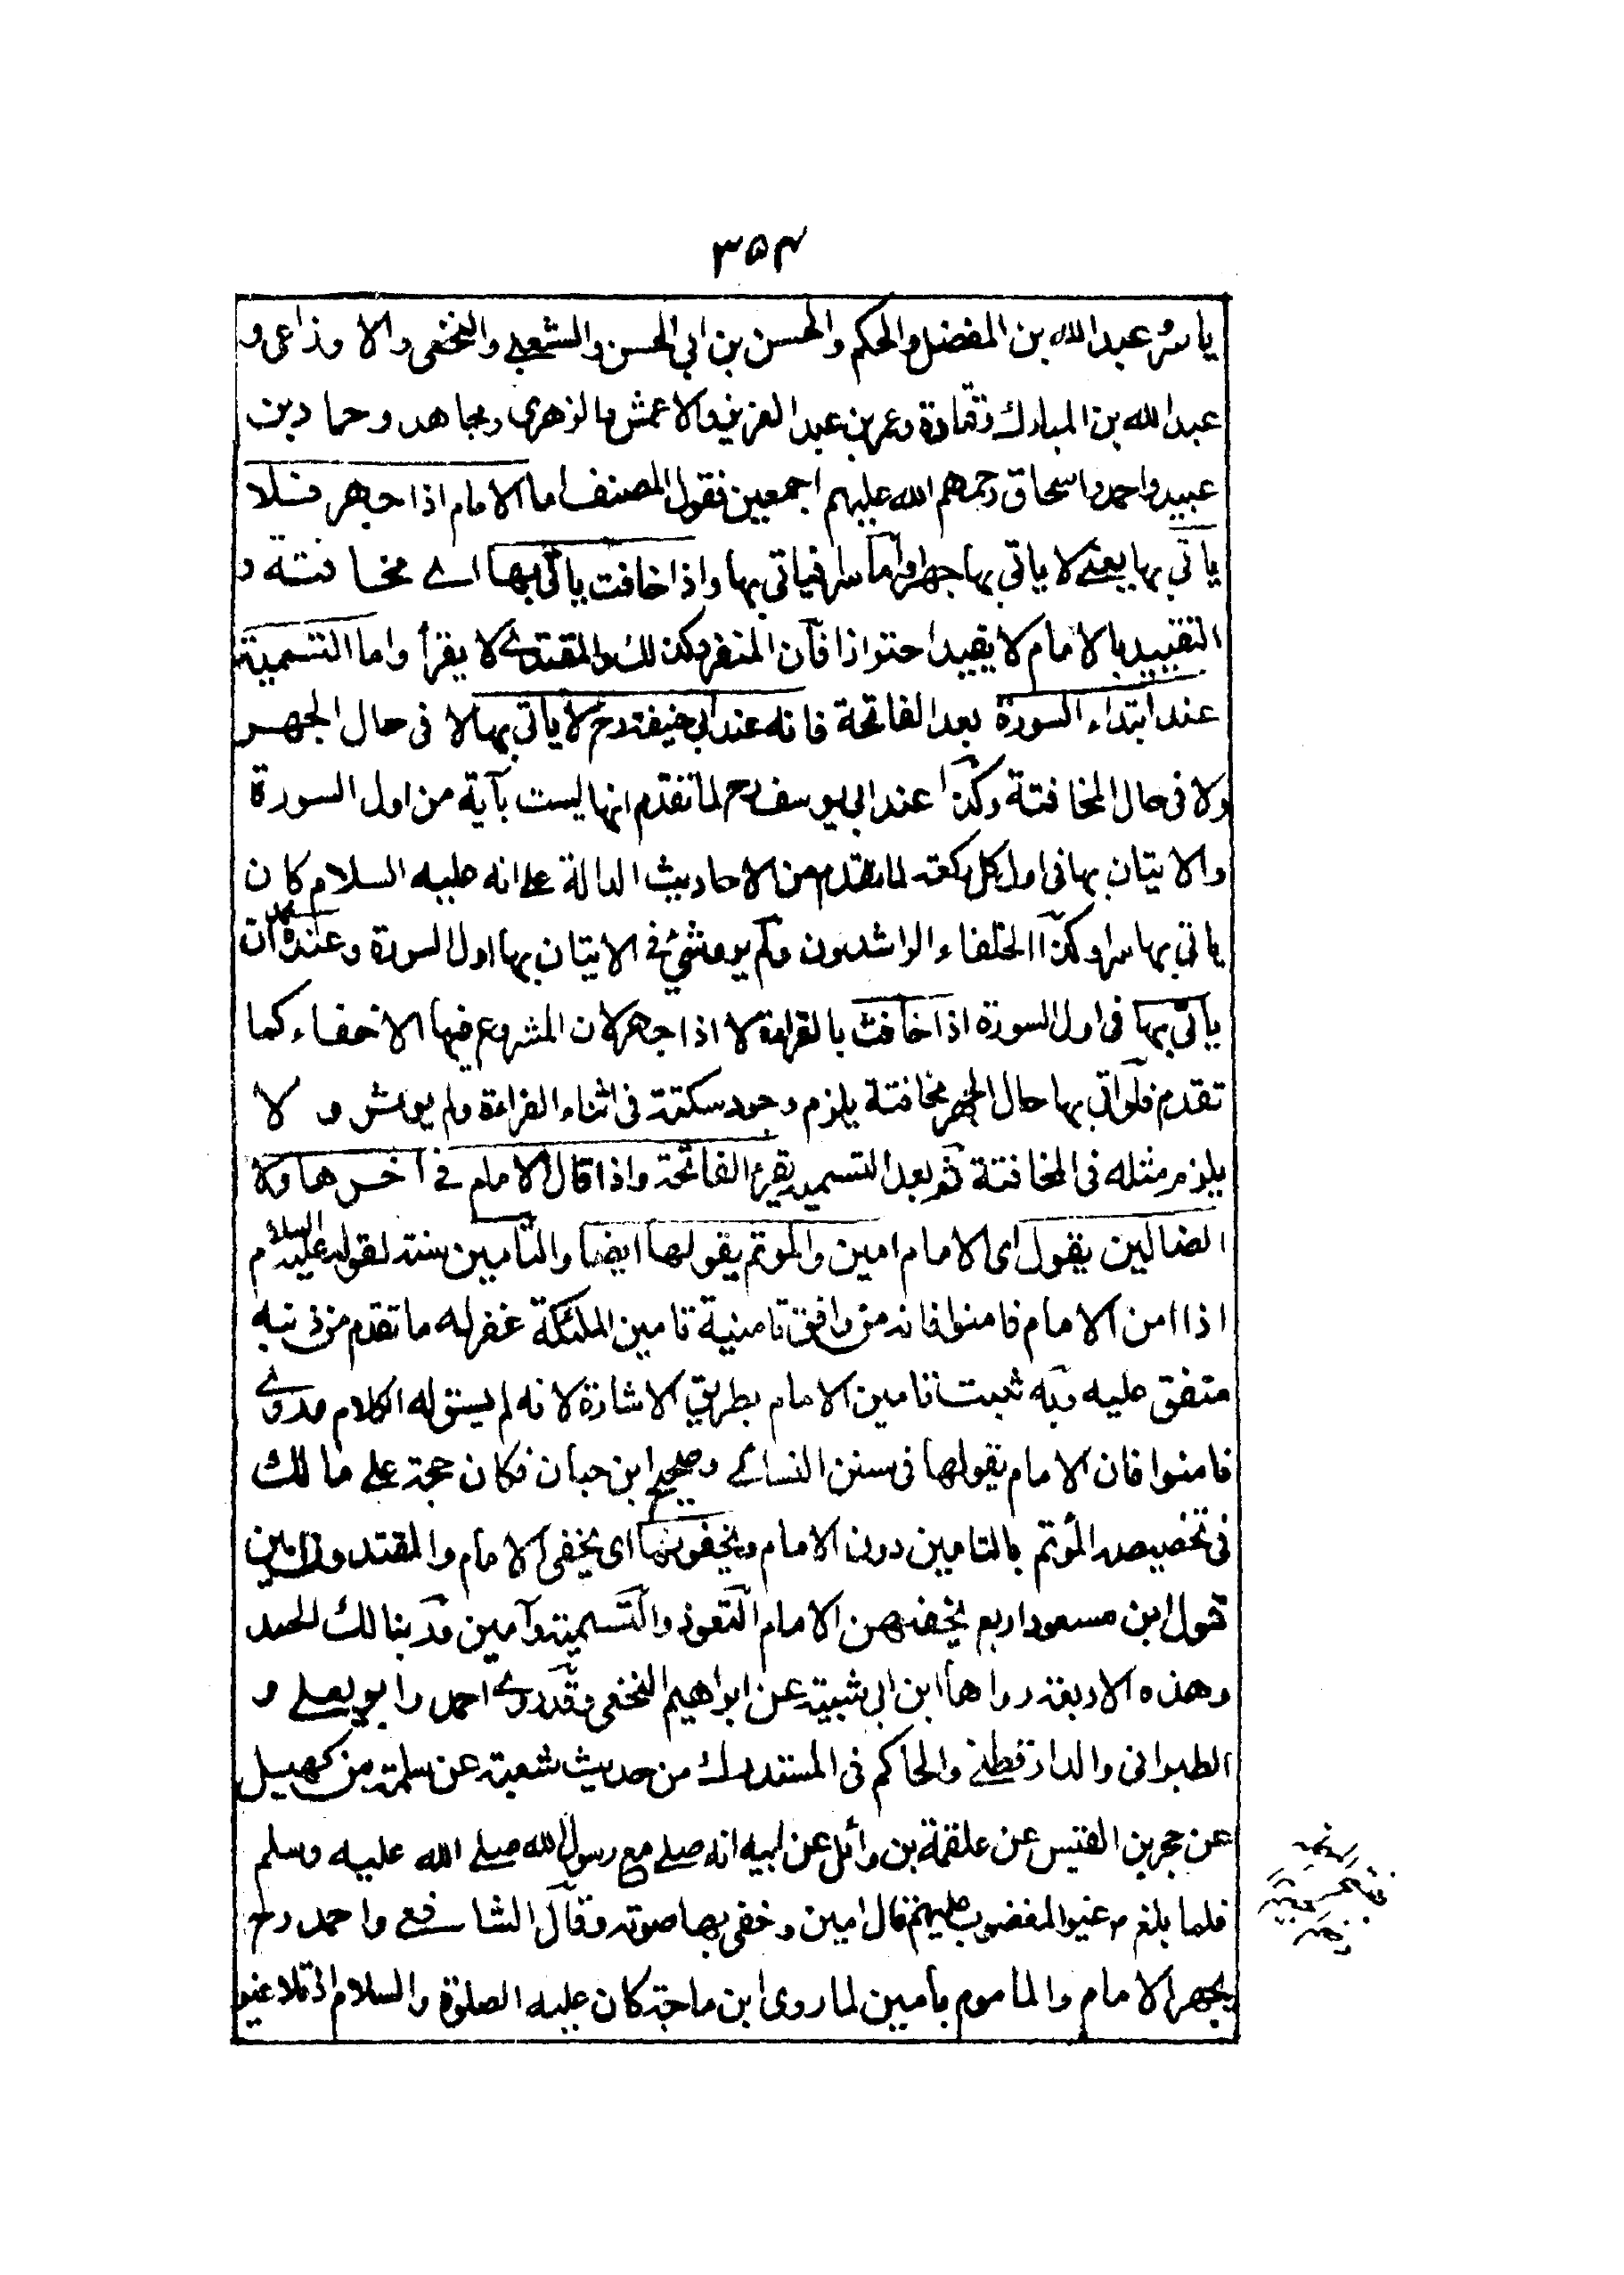 ٣٥٤
ياسر وعبد الله بن المفضل والحكم والحسن بن ابي الحسن والشعبي والنخعي والاوزاعي و
عبد الله بن المبارك وقتادة وعمر بن عبد العزيز والاعمش والزهرى ومجاهد وحماد بن
عبيد واحمد واسحاق رحمهم الله عليهم اجمعين فقول المصنف اما الامام اذا جهر فلا
ياتي بها يعنى لا ياتي بها جهرا واما سرا فياتي بها واذا خافت ياتي بها اے مخافتة و
التقييد بالامام لا يفيد احترازا فان المنفرد كذلك والمقتدى لا يقرأ واما التسمية
عند ابتداء السورة بعد الفاتحة فانه عند ابي حنيفة رح لا ياتي بها لا في حال الجهر
ولا في حال المخافتة وكذا عند ابي يوسف رح لما تقدم انها ليست بآية من اول السورة
والاتيان بها في اول كل ركعة لما تقدم من الاحاديث الدالة على انه عليه السلام كان
ياتي بها سرا وكذا الخلفاء الراشدون ولم يرو شئ في الاتيان بها اول السورة وعند محمد ان
ياتي بها في اول السورة اذا خافت بالقراءة لا اذا جهر لان المشروع فيها الاخفاء كما
تقدم فلو اتى بها حال الجهر مخافتة يلزم وجود سكتة في اثناء القراءة ولم يوثر و لا
يلزم مثله في المخافتة ثم بعد التسمية يقرء الفاتحة واذا قال الامام في آخرها ولا
الضالين يقول اى الامام امين والموتم يقولها ايضا والتامين سنة لقوله عليه السلام
اذا امن الامام فامنوا فانه من وافق تامينه تامين الملئكة غفر له ما تقدم من ذنبه
متفق عليه وبه ثبت تامين الامام بطريق الاشارة لانه لم يسق له الكلام وروى
فامنوا فان الامام يقولها في سنن النسائے وصحيح ابن حبان فكان حجة على مالك
في تخصيصه المؤتم بالتامين دون الامام ويخفونها اى يخفى الامام والمقتدون امين
قول ابن مسعود اربع يخفيهن الامام التعوذ والتسمية وآمين وربنا لك الحمد
وهذه الاربعة رواها ابن ابي شيبة عن ابراهيم النخعي وقد روى احمد وابو يعلى و
الطبراني والدارقطني والحاكم في المستدرك من حديث شعبة عن سلمة بن كهيل
عن حجر بن العنبس عن علقمة بن وائل عن ابيه انه صلى مع رسول الله صلى الله عليه وسلم
فلما بلغ غير المغضوب عليهم قال امين وخفى بها صوته وقال الشافعي واحمد رح
يجهر الامام والماموم بآمين لما روى ابن ماجة كان عليه الصلوة والسلام اذا تلا غير